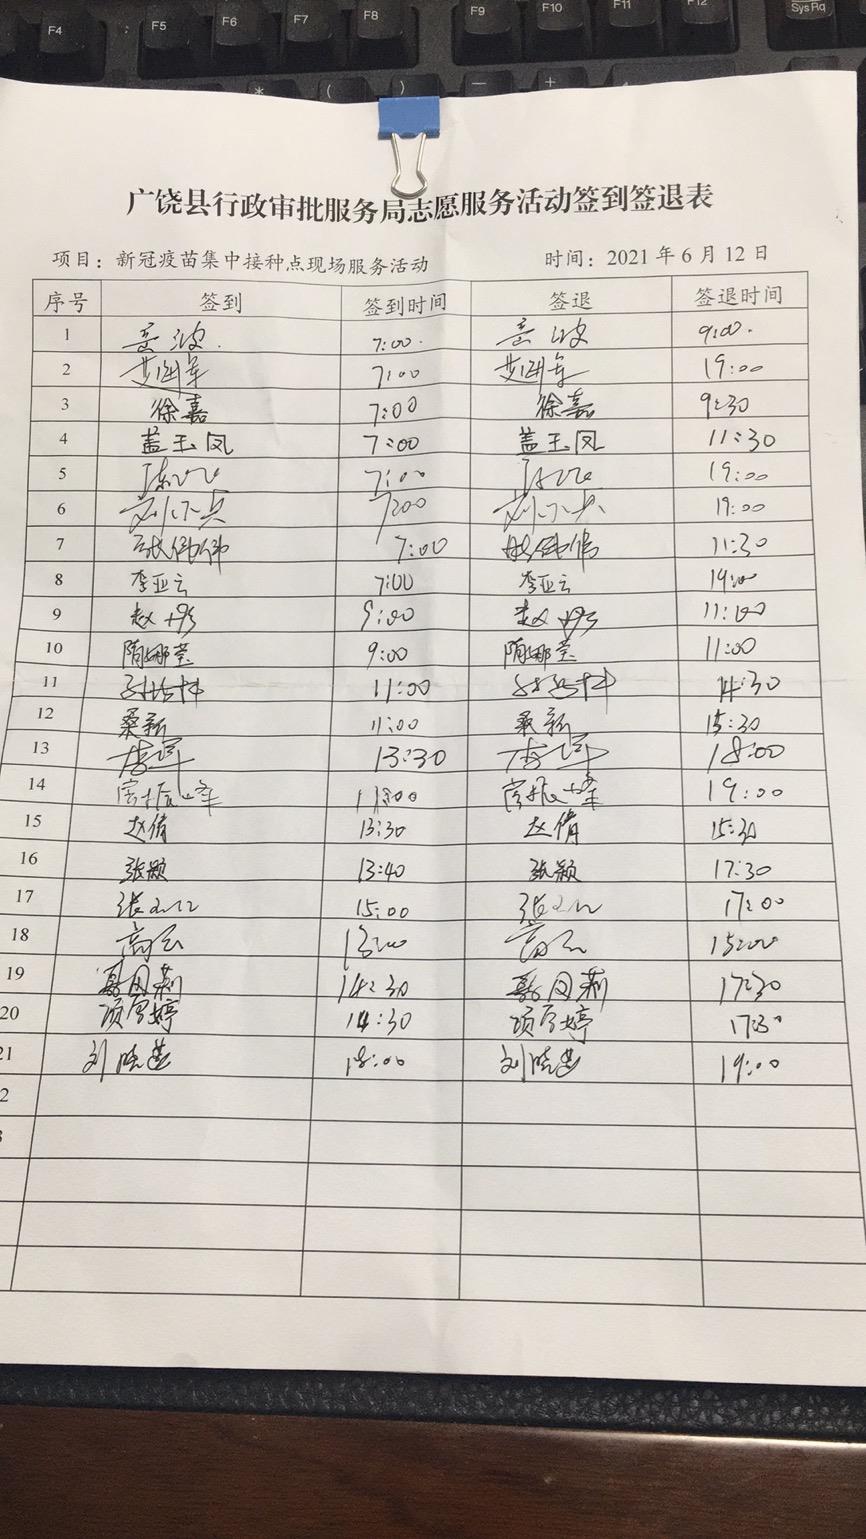 F4 F5 F6 F7 F8 F9 F10 F11 F12 SysRq
* ( ) — +
广饶县行政审批服务局志愿服务活动签到签退表
项目：新冠疫苗集中接种点现场服务活动 时间：2021 年 6 月 12 日
序号 签到 签到时间 签退 签退时间
1 7:00. 9:00.
2 7:00 19:00
3 徐嘉 7:00 徐嘉 9:30
4 盖玉凤 7:00 盖玉凤 11:30
5 7:00 19:00
6 7:00 19:00
7 7:00 11:30
8 李亚云 7:00 李亚云
9 9:00 11:00
10 隋娜莹 9:00 隋娜莹 11:00
11 11:00 14:30
12 桑新 11:00 桑新 15:30
13 13:30 18:00
14 19:00
15 赵倩 13:30 赵倩 15:30
16 张颖 13:40 张颖 17:30
17 15:00 17:00
18 15:00
19 14:30 17:30
20 项雪婷 14:30 项雪婷 17:30
21 刘晓 刘晓 19:00
2
3